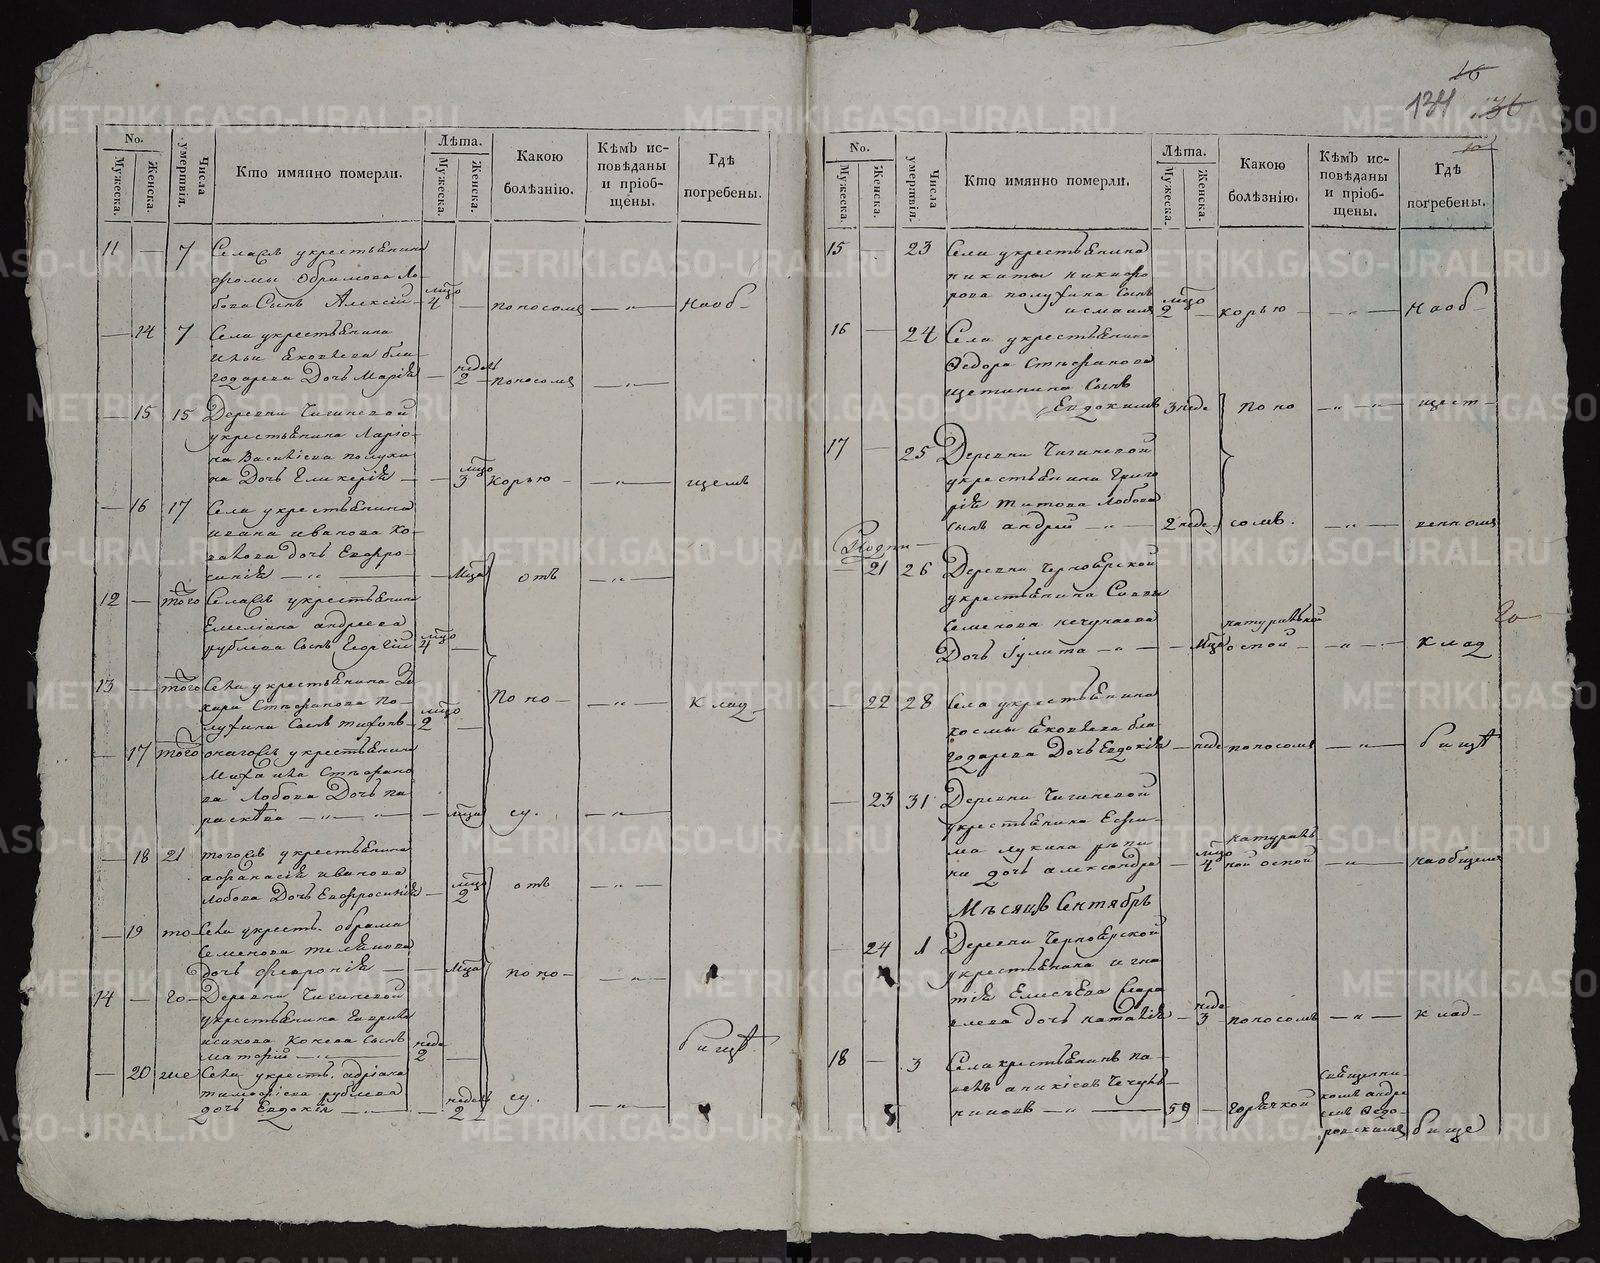 16
134 136
No.
Мужеска.
Женска.
Числа умертвія.
Кто имянно померли.
Лѣта.
Мужеска.
Женска.
Какою болѣзнію.
Кѣмъ исповѣданы и пріобщены.
Гдѣ погребены.
11 — 7 Селасъ укрестьянина
Фомы Обрамова Ло-
бова Сынъ Алексій 4 мцо — поносомъ —„— Наоб-
— 14 7 Села укрестьянина
Ильи Яковлева бла-
годарева Дочь Марія — 2 недел поносомъ —„—
— 15 15 Деревни Чигиневой
укрестьянина Ларіо-
на Василіева полухи-
на Дочь Гликерія — 3 мцо корью —„— щемъ
— 16 17 Села укрестьянина
ивана иванова Ко-
валова дочь Евфро-
синія —„— — Мца отъ —„—
12 — того Селасъ укрестьянина
Емеліана андреева
рублева Сынъ Георгій 4 мцо —
13 — того Села укрестьянина За
хара Стефанова По-
лухина Сынъ тихонъ 2 мцо — По но- —„— клад-
— 17 того онагосъ укрестьянина
Михаила Стефано
ва Лобова Дочь па
раскева —„— „— — мца су. —„—
— 18 21 тогосъ укрестьянина
афанасія иванова
лобова Дочь Евфросинія — 2 мцо отъ —„—
— 19 то- Села укресть. обрама
Семенова телѣнова
дочь февронія — — Мца по но- —„—
14 — го- Деревни Чигиневой
укрестьянина Гаврила
исакова Конева Сынъ
маторій —„— 2 неде — бищѣ
— 20 же Села укресть. адріана
тимофіева рублева
дочь Евдокія —„— — 2 недель су. —„—
No.
Мужеска.
Женска.
Числа умертвія.
Кто имянно померли.
Лѣта.
Мужеска.
Женска.
Какою болѣзнію.
Кѣмъ исповѣданы и пріобщены.
Гдѣ погребены.
15 — 23 Села укрестьянина
никиты никифо
рова полухина Сынъ
исмаилъ 2 мцо — корью —„— Наоб-
16 — 24 Села укрестьянина
Федора Стефанова
щетинина Сынъ
Евдокимъ 3 неде По но —„— „— щест-
17 — 25 Деревни Чигиневой
укрестьянина Григо
рія титова Лобова
сынъ андрей —„— 2 неде сомъ. —„— венномъ
— 21 26 Деревни Черноярской
укрестьянина Савы
Семенова нечунаева
Дочь Іулита —„— — Мца натуральной оспой —„— клад
— 22 28 Села укрестьянина
космы Яковлева бла-
годарева Дочь Евдокія — неде поносомъ —„— бищѣ
— 23 31 Деревни Чигиневой
укрестьянина Ефи-
ма лукина рѣпи
на дочь александра — 4 мцо натураль ной оспой —„— наобщемъ
Мѣсяцъ Сентябрь
— 24 1 Деревни Черноярской
укрестьянина игна
тія Елисѣева
дочь наталія — 3 неде поносомъ —„— клад-
18 — 3 Села крестьянинъ па-
велъ аникіевъ
—„— 59 — горячкой священни-
комъ андре
емъ Ѳедо-
ровскимъ бище